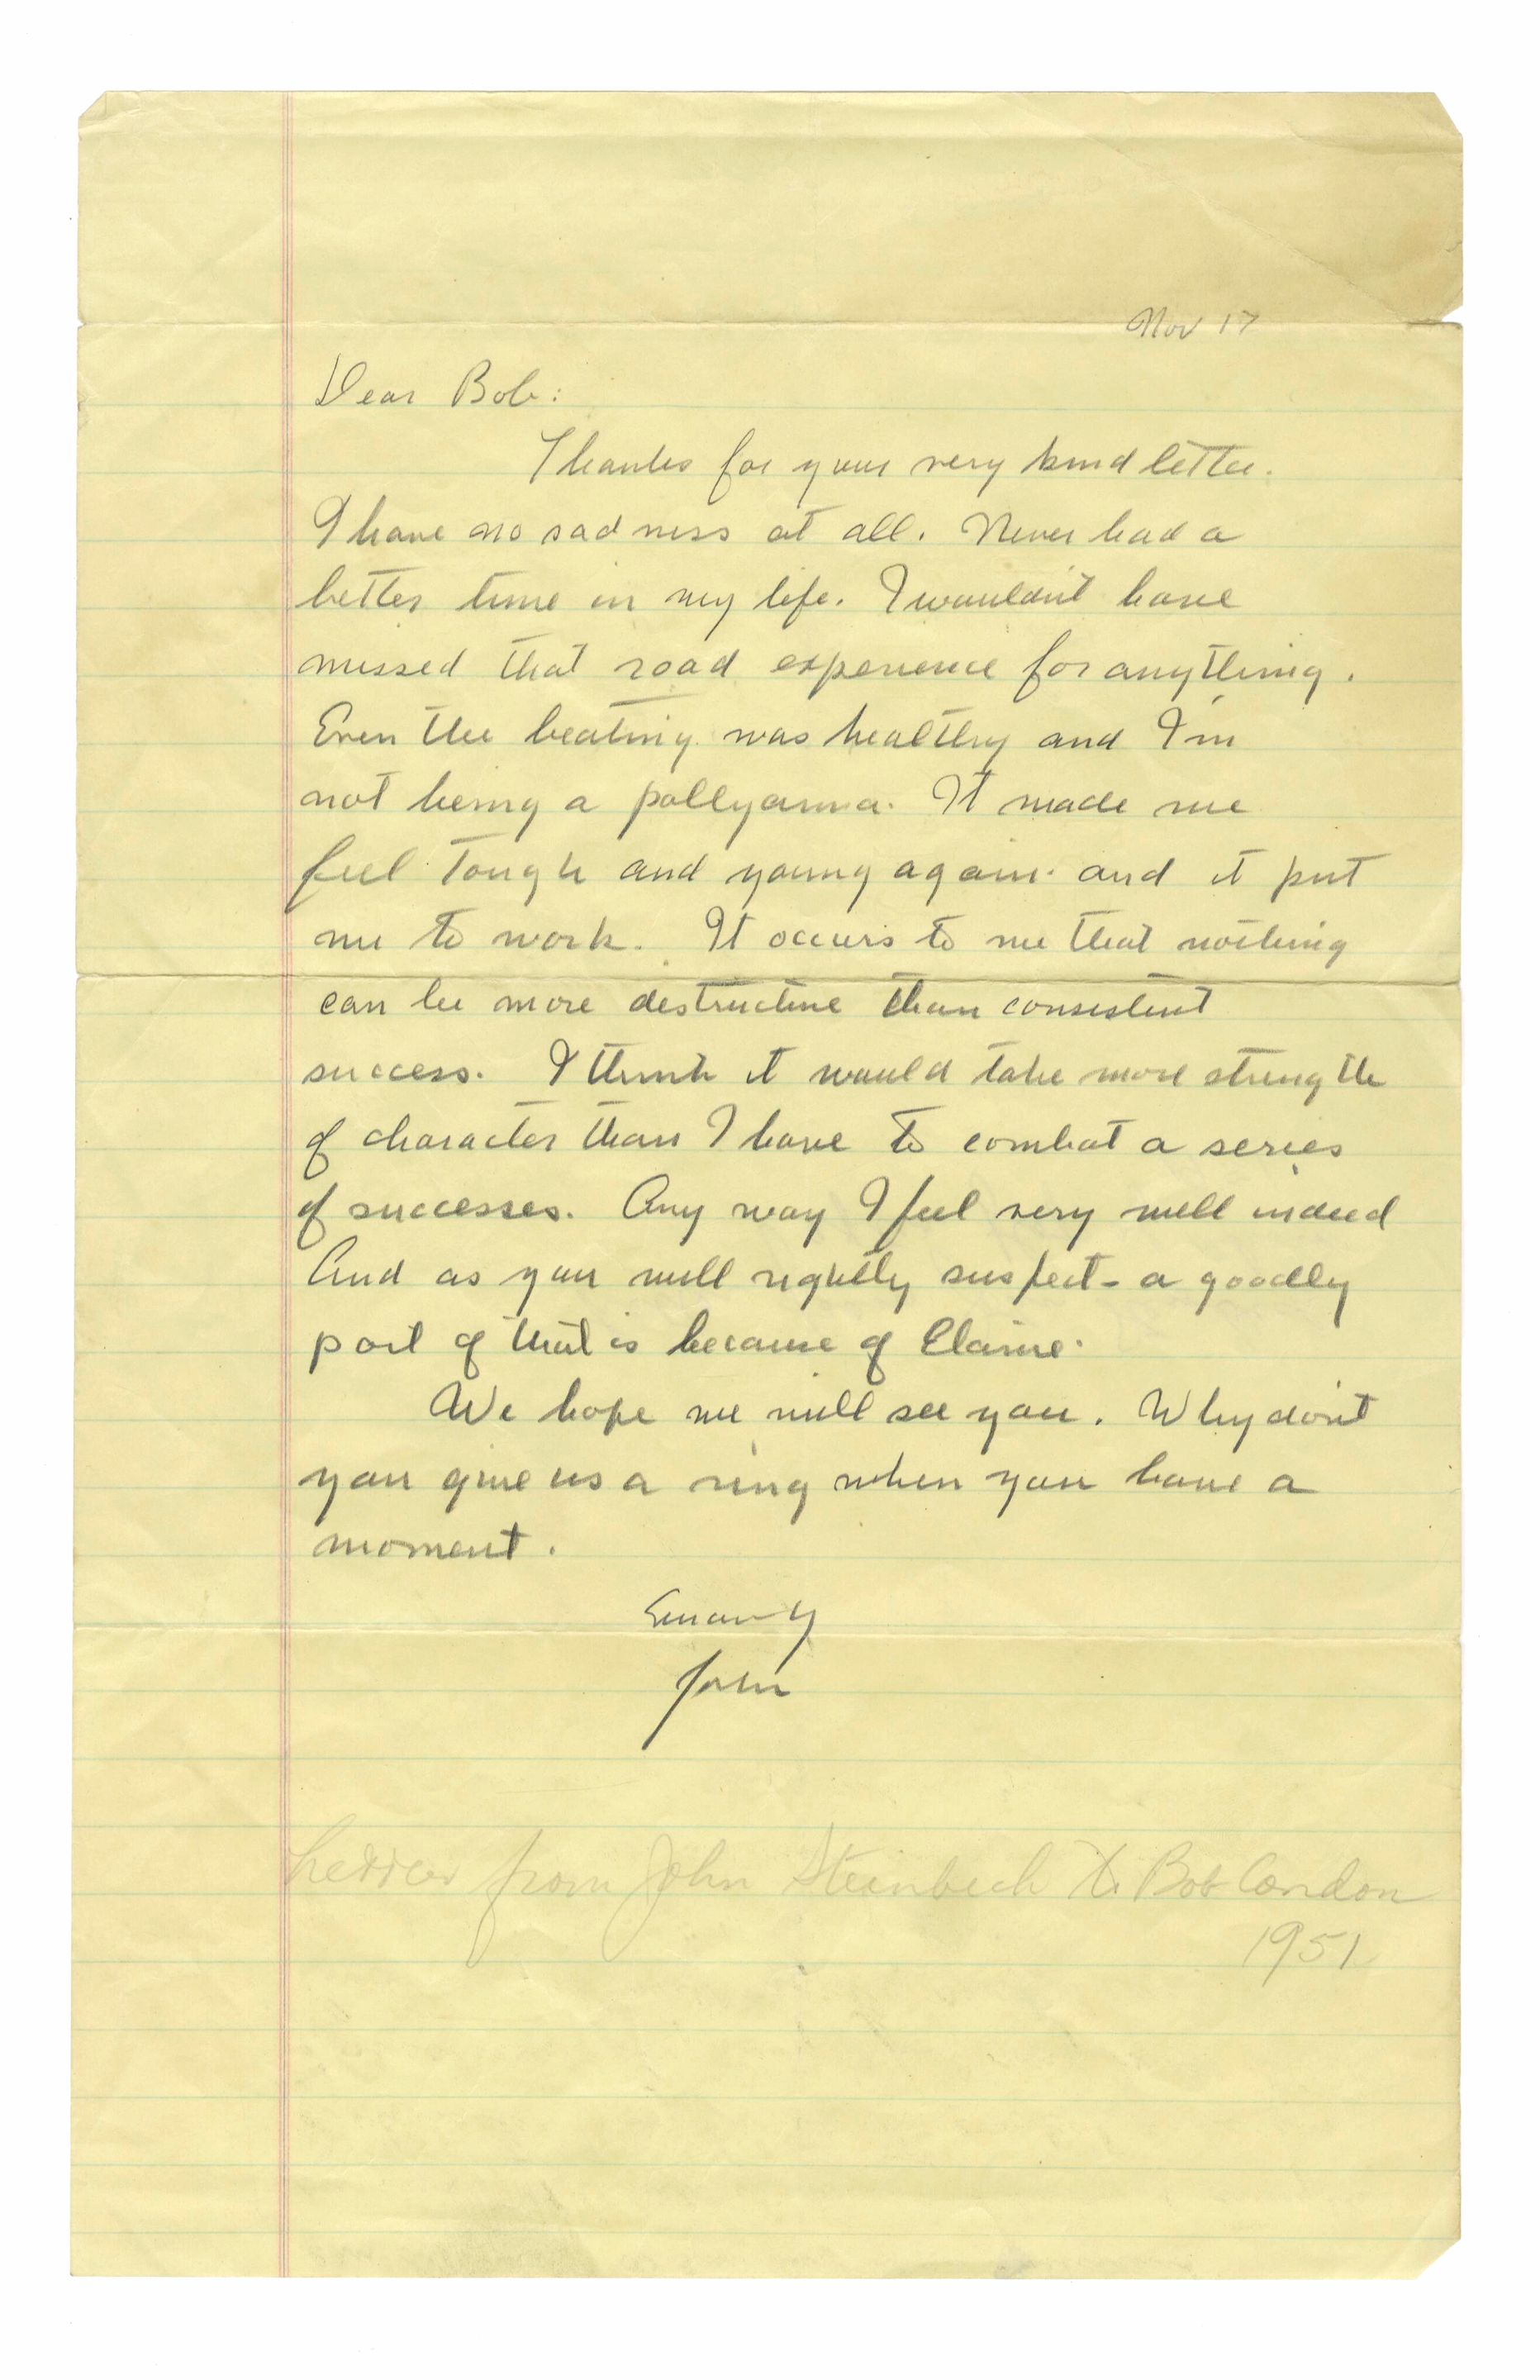 Nov 17
Dear Bob:
Thanks for your very kind letter.
I have no sadness at all. Never had a
better time in my life. I wouldn't have
missed that road experience for anything.
Even the beating was healthy and I'm
not being a pollyanna. It made me
feel tough and young again. and it put
me to work. It occurs to me that nothing
can be more destructive than consistent
success. I think it would take more strength
of character than I have to combat a series
of successes. Any way I feel very well indeed
And as you will rightly suspect - a goodly
part of that is because of Elaine.
We hope we will see you. Why don't
you give us a ring when you have a
moment.
John
Letter from John Steinbeck to Bob Condon
1951